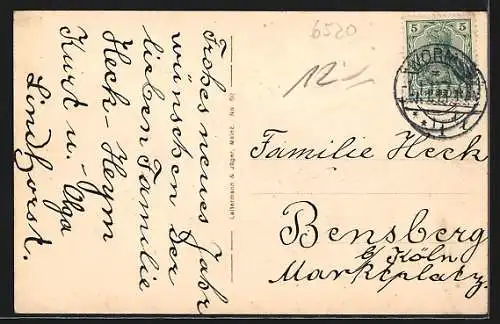 6520
12.-
5 5
WORMS
Frohes neues Jahr
wünschen der
lieben Familie
Heck-Heym
Kurt u. Olga
Lindhorst.
Leitermann & Jäger, Mainz. No. 50
Familie Heck
Bensberg
b/Köln
Marktplatz.